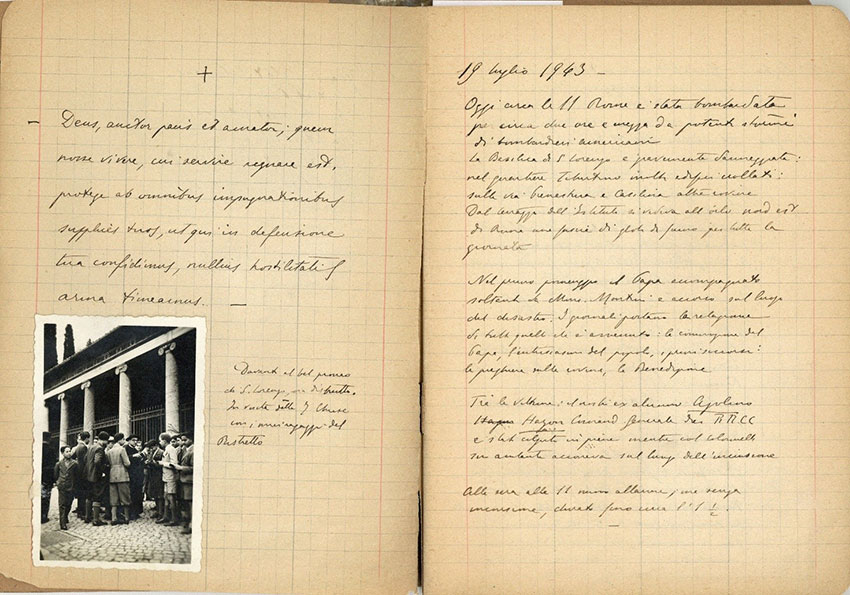 +
– Deus, auctor pacis et amator; quem
nosse vivere, cui servire regnare est,
protege ab omnibus impugnationibus
supplices tuos, ut qui in defensione
tua confidimus, nullius hostilitatis
arma timeamus. —
Davanti al bel
di S. Lorenzo, ora distrutto.
In visita delle 7 Chiese
con i miei ragazzi del
Ristretto
19 luglio 1943 –
Oggi circa le 11 Roma è stata bombardata
per circa due ore e mezza da potenti stormi
di bombardieri americani
La Basilica di S. Lorenzo è gravemente danneggiata:
nel quartiere Tiburtino molti edifici crollati:
sulla via Prenestina e Casilina altre rovine
Dal terrazzo dell'Istituto si vedeva all' nord est
di Roma una di di fumo per tutta la
giornata
Nel primo pomeriggio il Papa accompagnato
soltanto da Mons. Montini è accorso sul luogo
del disastro. I giornali portano la relazione
di tutto quello che è avvenuto: la commozione del
Papa, l'entusiasmo del popolo,
le preghiere sulle rovine, la Benedizione
Tra le vittime: il nostro ex alunno Azolino
Hazon Generale dei RR CC
è stato colpito in pieno mentre col colonnello
suo aiutante accorreva sul luogo dell'incursione
Alla sera alle 11 nuovo allarme, ma senza
incursione, durato fino circa l'1 ½.
–